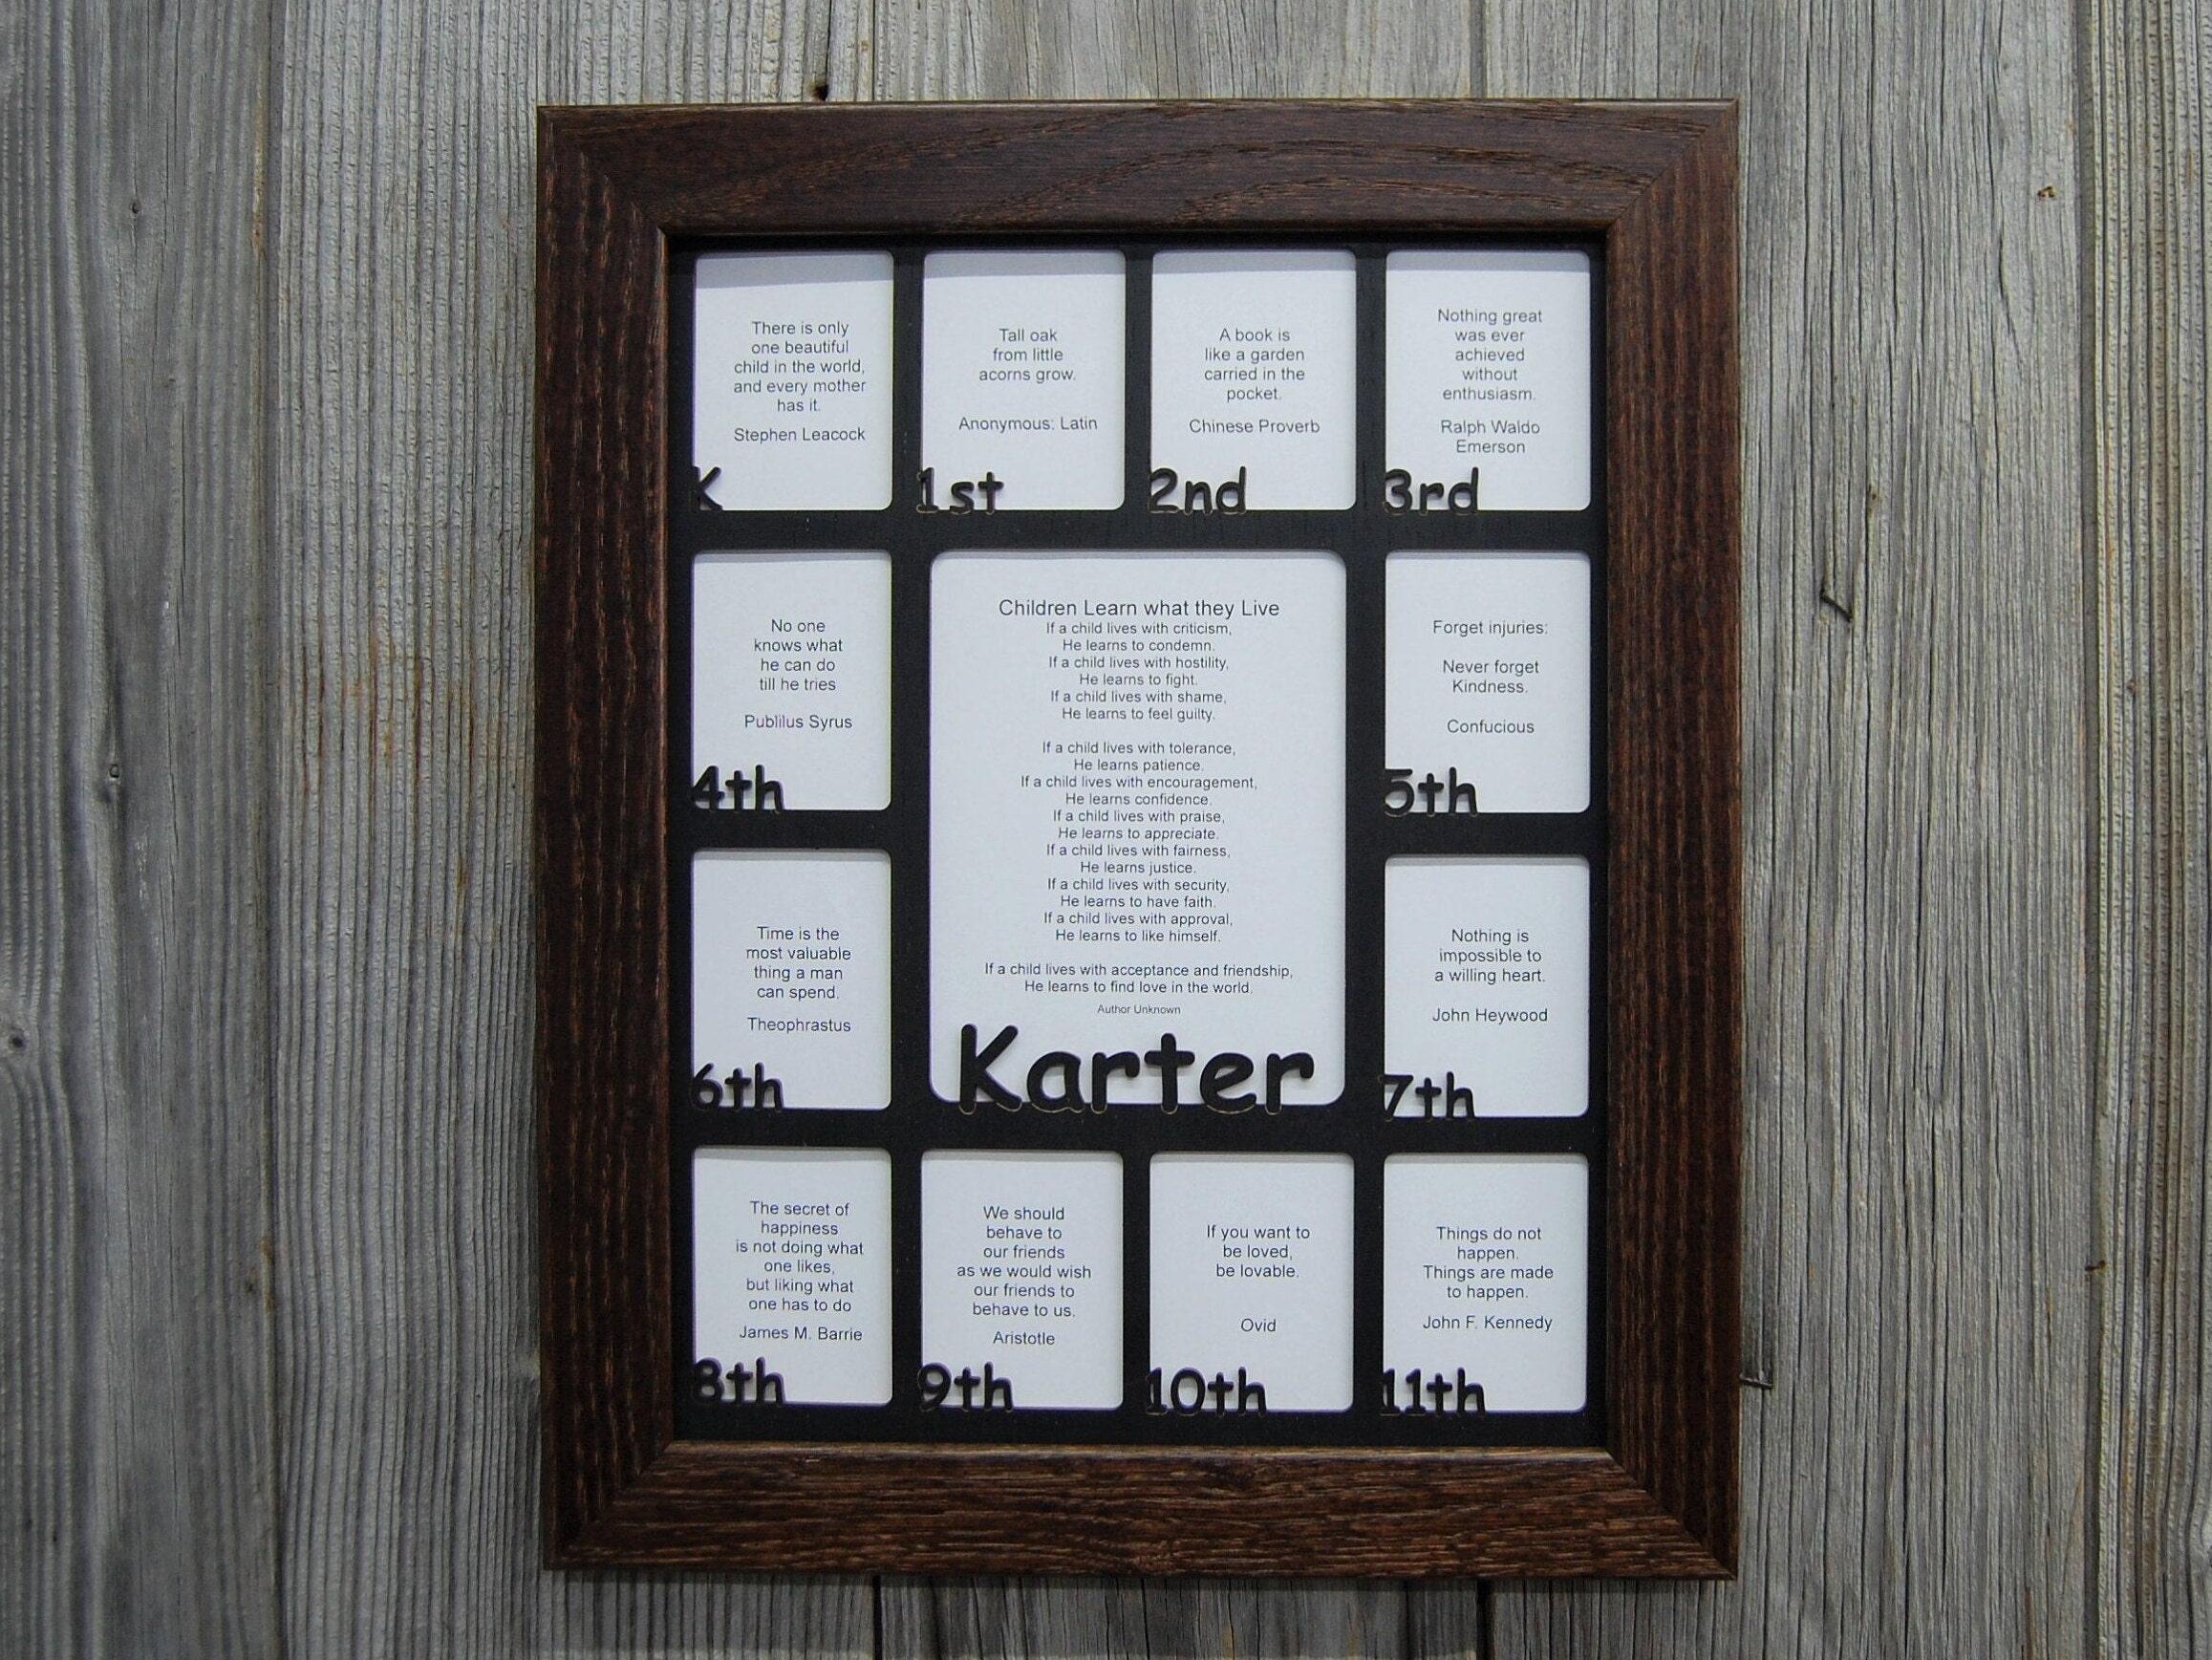 There is only
one beautiful
child in the world,
and every mother
has it.
Stephen Leacock
K
Tall oak
from little
acorns grow.
Anonymous: Latin
1st
A book is
like a garden
carried in the
pocket.
Chinese Proverb
2nd
Nothing great
was ever
achieved
without
enthusiasm.
Ralph Waldo
Emerson
3rd
No one
knows what
he can do
till he tries
Publilus Syrus
4th
Children Learn what they Live
If a child lives with criticism,
He learns to condemn.
If a child lives with hostility,
He learns to fight.
If a child lives with shame,
He learns to feel guilty.
If a child lives with tolerance,
He learns patience.
If a child lives with encouragement,
He learns confidence.
If a child lives with praise,
He learns to appreciate.
If a child lives with fairness,
He learns justice.
If a child lives with security,
He learns to have faith.
If a child lives with approval,
He learns to like himself.
If a child lives with acceptance and friendship,
He learns to find love in the world.
Author Unknown
Karter
Forget injuries:
Never forget
Kindness.
Confucious
5th
Time is the
most valuable
thing a man
can spend.
Theophrastus
6th
Nothing is
impossible to
a willing heart.
John Heywood
7th
The secret of
happiness
is not doing what
one likes,
but liking what
one has to do
James M. Barrie
8th
We should
behave to
our friends
as we would wish
our friends to
behave to us.
Aristotle
9th
If you want to
be loved,
be lovable.
Ovid
10th
Things do not
happen.
Things are made
to happen.
John F. Kennedy
11th